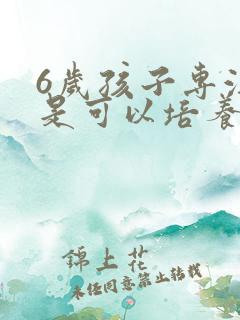 6歲孩子專
是可以培養
錦上花
未任同意禁止轉載